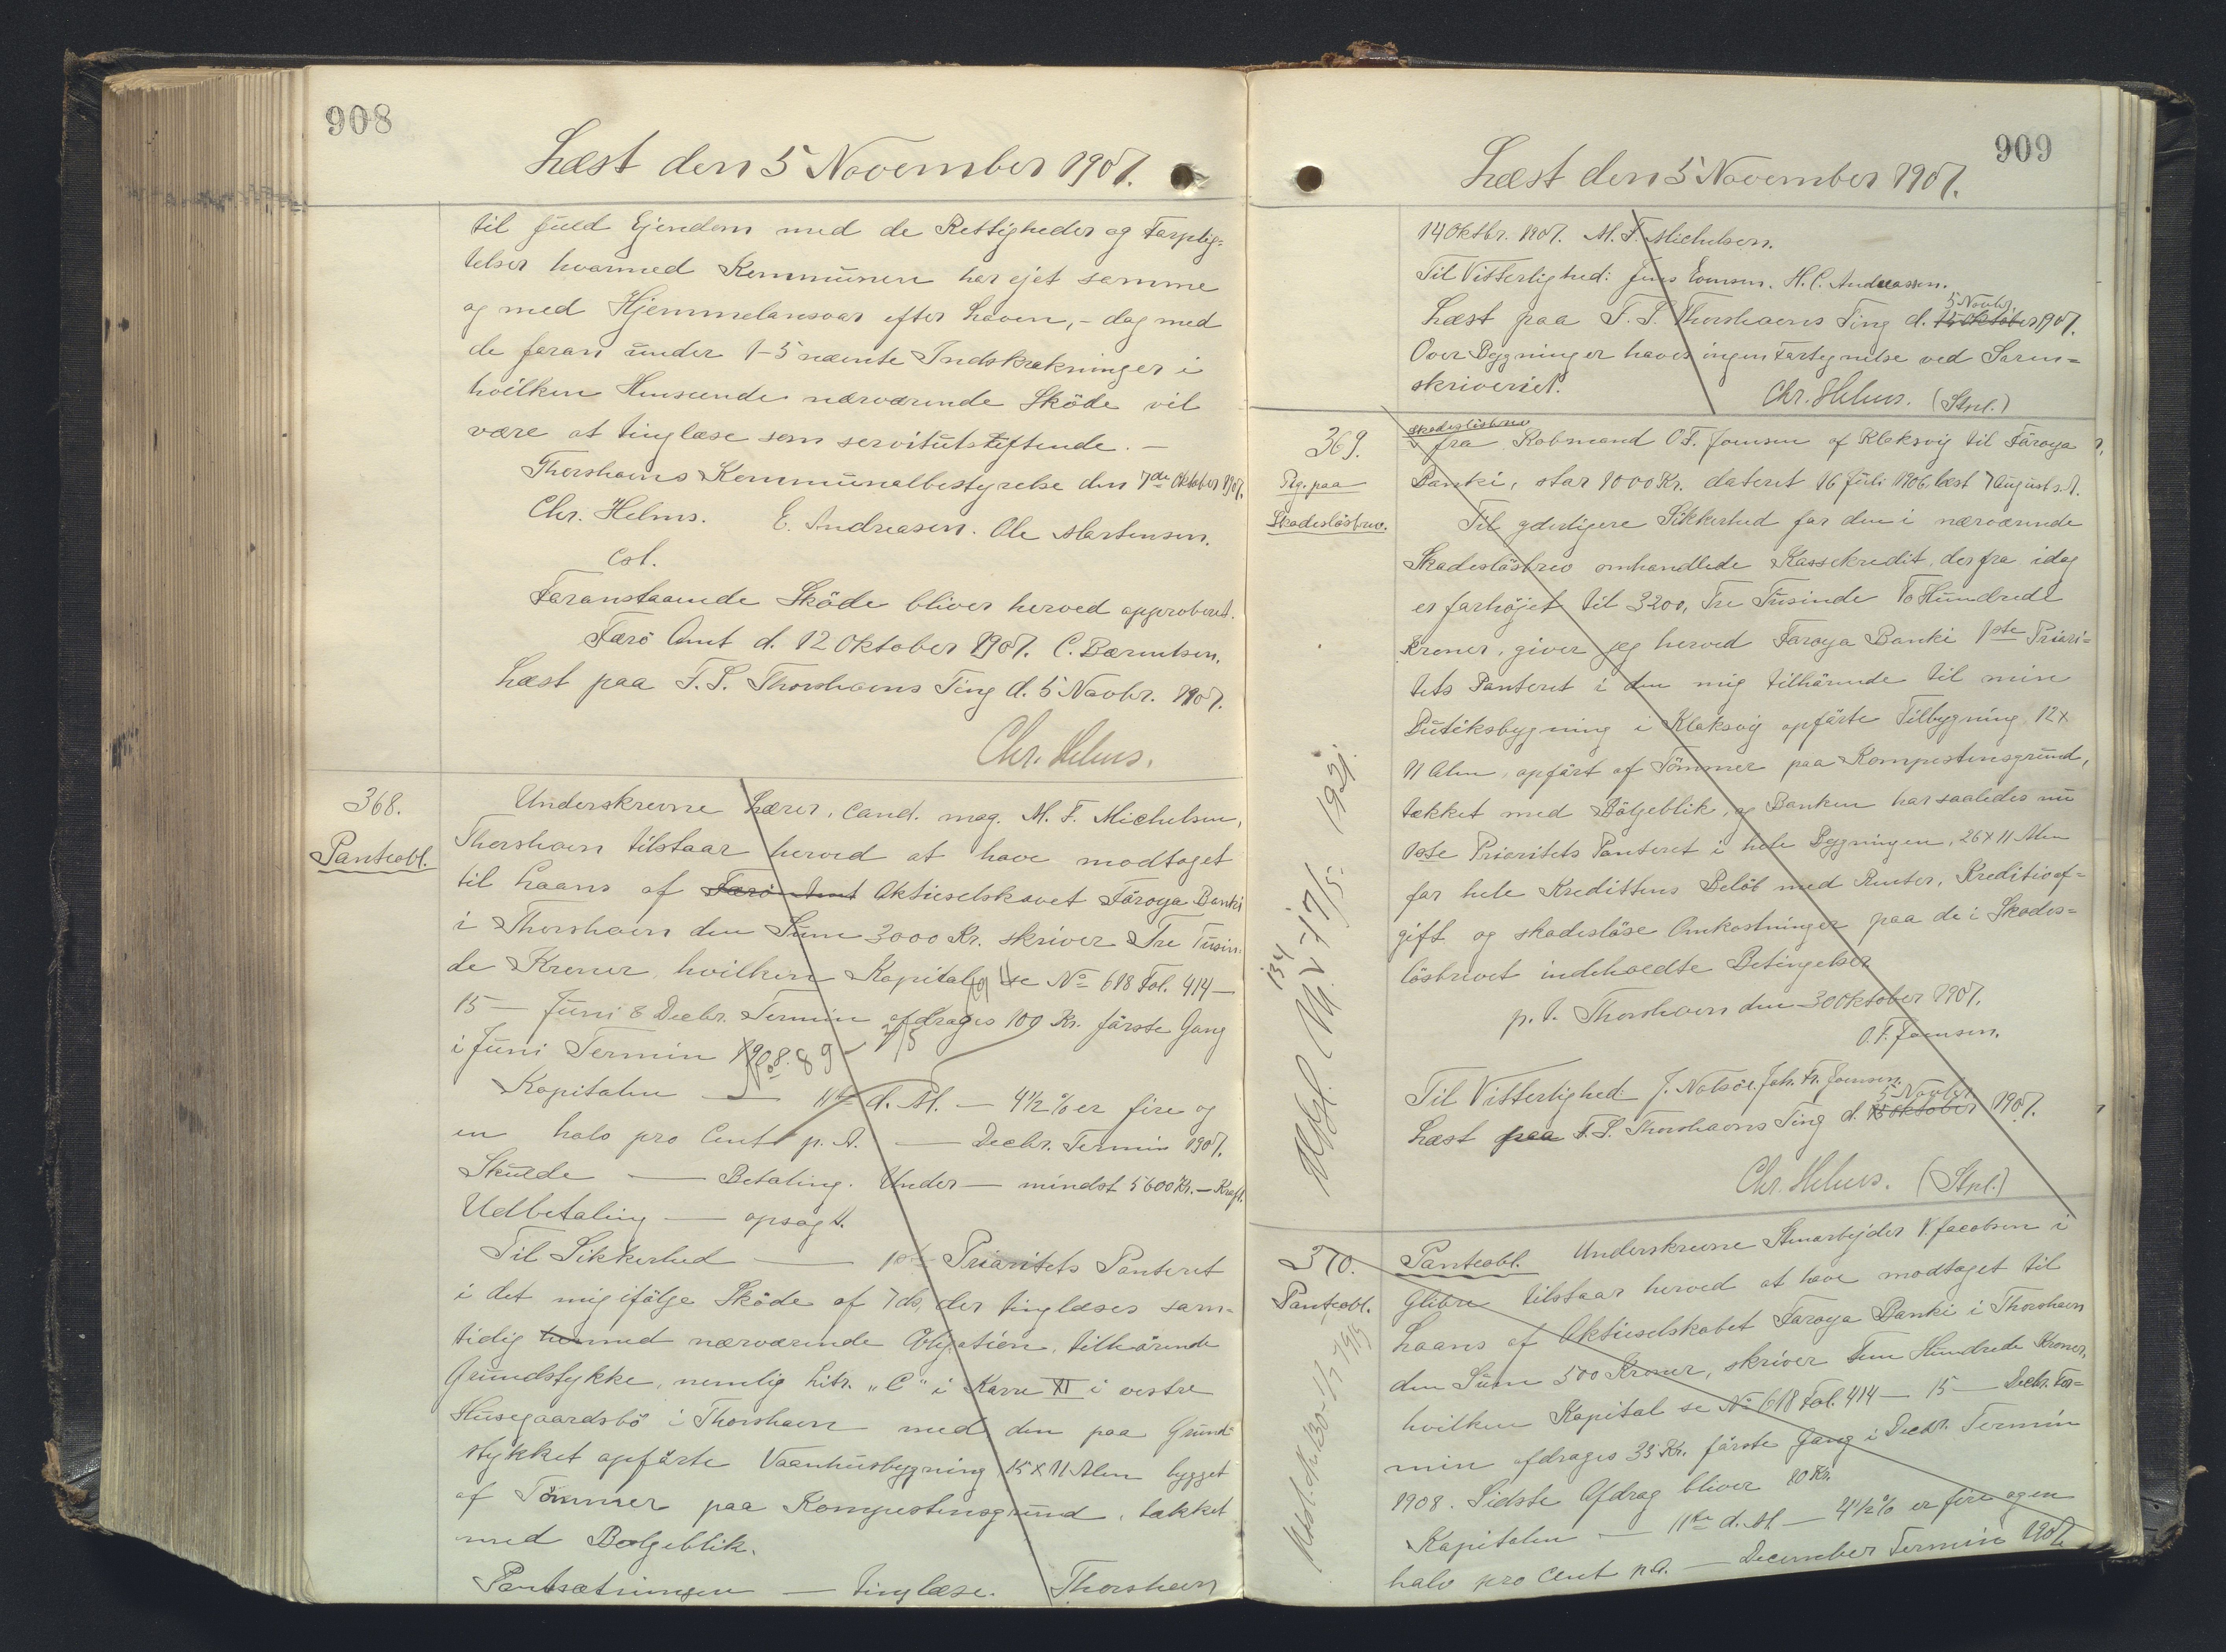 908
Læst den 5 November 1907.
til fuld Ejendom med de Rettigheder og Forplig-
telser hvormed Kommunen har ejet samme
og med Hjemmelansvar efter Loven, - dog med
de foran under 1-5 nævnte Indskrækninger i
hvilken Henseende nærværende Sköde vil
være at tinglæse som servitutstiftende. -
Thorshavns Kommunalbestyrelse den 7de Oktober 1907.
Chr. Helms. E. Andreasen. Ole Mortensen.
cst.
Foranstaaende Sköde bliver herved approberet.
Færö Amt d. 12 Oktober 1907. C. Bærentsen.
Læst paa F. S. Thorshavns Ting d. 5 Novbr. 1907.
Chr. Helms.
368.
Panteobl.
Underskrevne Lærer, cand. mag. M. F. Michelsen,
Thorshavn tilstaar herved at have modtaget
til Laans af Færö Amt Aktieselskavet Föroya Banki
i Thorshavn den Sum 3000 Kr. skriver Tre Tusin-
de Kroner, hvilken Kapital se No 618 Fol. 414 —
15 — Juni & Decbr. Termin afdrages 100 Kr. förste Gang
i Juni Termin 1908.
Kapitalen — 11te d. M. — 4½ % er fire og
en halv pro Cent p. A. — Decbr. Termin 1907.
Skulde — Betaling. Under — mindst 5600 Kr. — Kraft.
Udbetaling — opsagt.
Til Sikkerhed — 1ste Prioritets Panteret
i det mig ifölge Sköde af 7 ds. der tinglæses sam-
tidig med nærværende Obligation, tilhörende
Grundstykke, nemlig Litr. "C" i Karre XI i vestre
Husegaardsbö i Thorshavn med den paa Grund-
stykket opförte Vaanhusbygning 15 x 11 Alen bygget
af Tömmer paa Kompestensgrund, tækket
med Bølgeblik.
Pantsætningen — tinglæse. Thorshavn
909
Læst den 5 November 1907.
14 Oktbr. 1907. M. F. Michelsen.
Til Vitterlighed: Jens H. C. Andreassen.
Læst paa F. S. Thorshavns Ting d. 15 Oktober 5 Novbr. 1907.
Over Bygninger haves ingen Fortegnelse ved Soren-
skriveriet. Chr. Helms. (Stpl.)
369.
Ptg. paa
Skadeslösbrev.
Skadeslösbrev
fra Købmand O. F. Joensen af Klaksvig til Föroya
Banki, stor 1000 Kr. dateret 16 Juli 1906, læst 7 August s. A.
Til yderligere Sikkerhed for den i nærværende
Skadeslösbrev omhandlede Kassekredit, der fra idag
er forhöjet til 3200, Tre Tusinde To Hundrede
Kroner, giver jeg herved Föroya Banki 1ste Priori-
tets Panteret i den mig tilhörende til min
Butiksbygning i Klaksvig opförte Tilbygning 12 x
11 Alen, opfört af Tömmer paa Kompestensgrund,
tækket med Bölgeblik, og Banken har saaledes nu
1ste Prioritets Panteret i hele Bygningen, 26 x 11 Alen
for hele Kredittens Belöb med Renter, Kreditaf-
gift og skadeslöse Omkostninger paa de i Skades-
lösbrevet indeholdte Betingelser
p. t. Thorshavn den 30 Oktober 1907.
O. F. Joensen.
Til Vitterlighed: J. Nolsöe. Joh. Fr. Joensen.
Læst paa F. S. Thorshavns Ting d. 15 Oktober 5 Novbr 1907.
Chr. Helms. (Stpl.)
370.
Panteobl.
Panteobl. Underskrevne Stenarbejder V. Jacobsen i
Glibre tilstaar herved at have modtaget til
Laans af Aktieselskabet Föroya Banki i Thorshavn
den Sum 500 Kroner, skriver Fem Hundrede Kroner,
hvilken Kapital se No 618 Fol. 414 — 15 — Decbr. Ter-
min afdrages 35 Kr. förste Gang i Decbr. Termin
1908. Sidste Afdrag bliver 10 Kr.
Kapitalen — 11te d. M. — 4½ % er fire og en
halv pro Cent p. A. — December Termin 1907